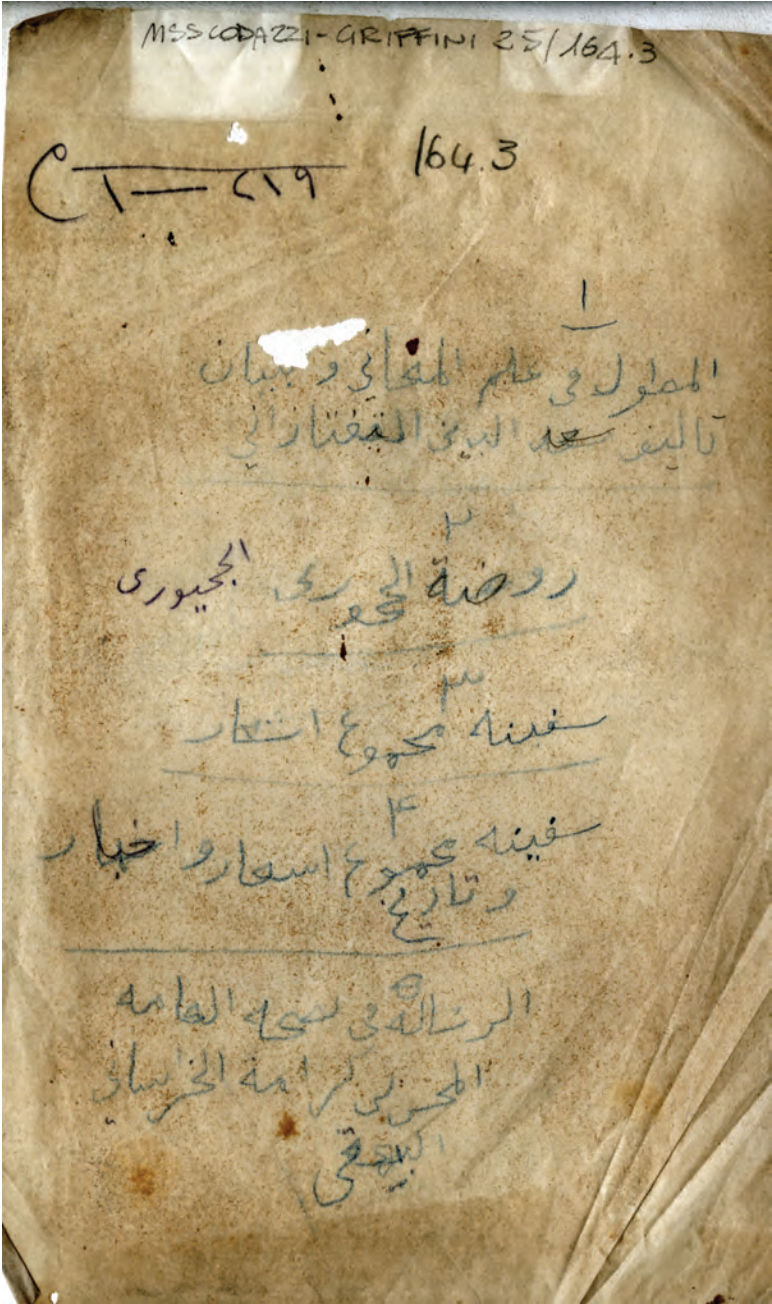 MSS CODAZZI-GRIFFINI 25/164.3
164.3
١ — ٢١٩
١
المطول في علم المعاني و بيان
تاليف سعد الدين التفتازاني
٢
روضة الحجورى الججيورى
٣
سفينه مجموع اشعار
۴
سفينه مجموع اسعار واخبار
و تاريخ
٥
الرسالة في نصيحه العامه
كرامة الخراساني
البيهقي